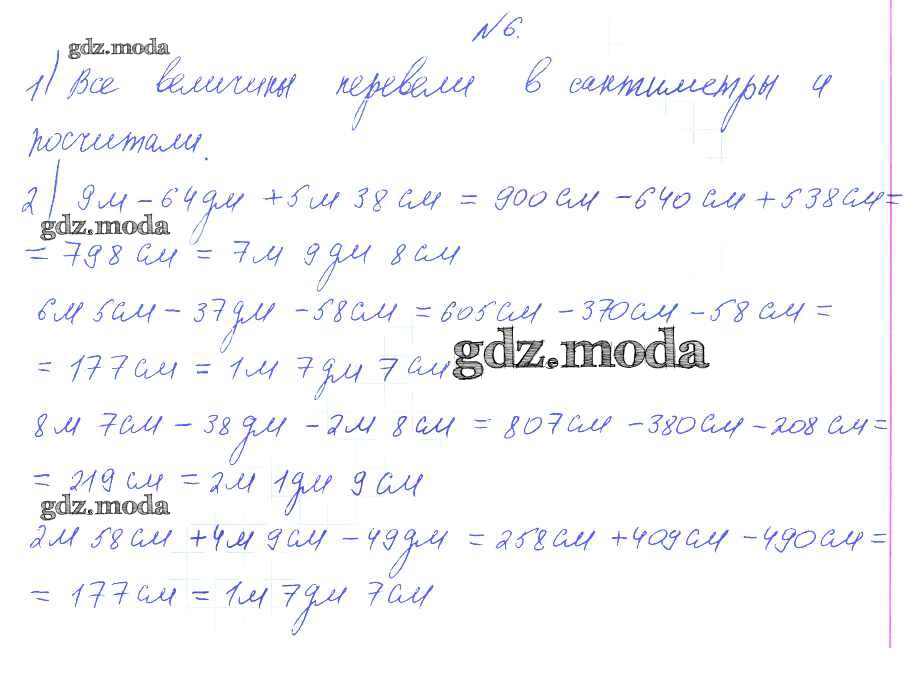 №6.
gdz.moda
1) Все величины перевели в сантиметры и
посчитали.
2) 9м - 64дм + 5м 38см = 900см - 640см + 538см =
gdz.moda
= 798см = 7м 9дм 8см
6м 5см - 37дм - 58см = 605см - 370см - 58см =
= 177см = 1м 7дм 7см
gdz.moda
8м 7см - 38дм - 2м 8см = 807см - 380см - 208см =
= 219см = 2м 1дм 9см
gdz.moda
2м 58см + 4м 9см - 49дм = 258см + 409см - 490см =
= 177см = 1м 7дм 7см